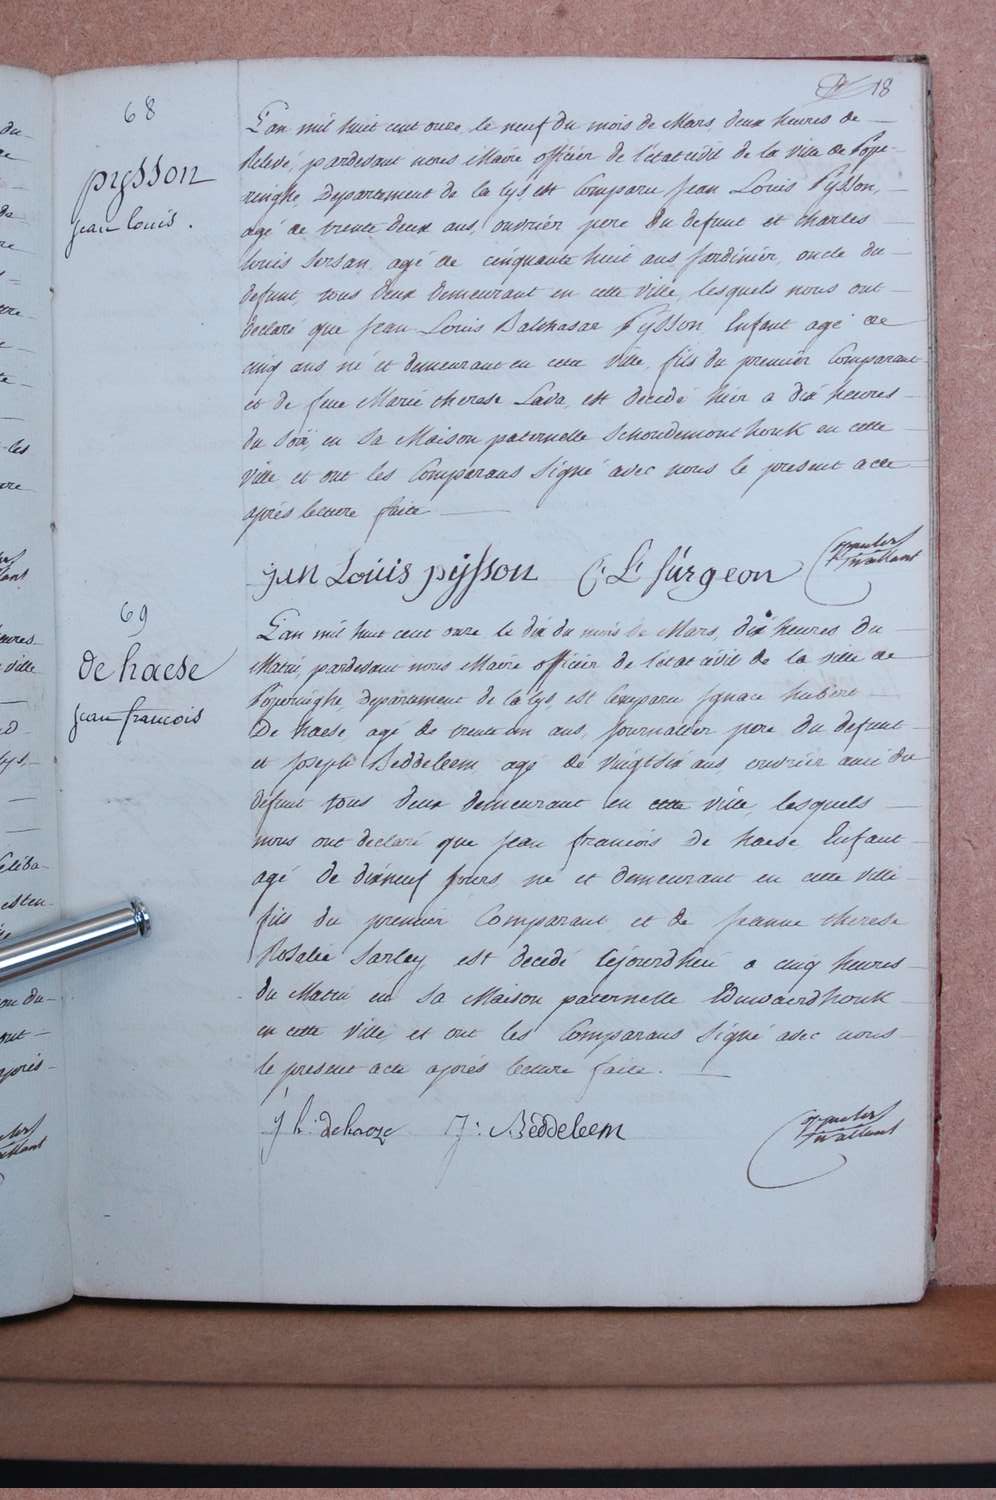 18
68
pysson
jean louis.
L'an mil huit cent onze, le neuf du mois de Mars, deux heures de
Relevé, pardevant nous Maire officier de l'état civil de la ville de Pope-
ringhe, Departement de la Lys, est Comparu Jean Louis Pysson,
agé de trente deux ans, ouvrier pere du defunt et charles
louis Sersan agé de cinquante huit ans Jardinier, oncle du
defunt, tous deux demeurant en cette ville, lesquels nous ont
declaré que Jean Louis Balthasar Pysson, Enfant agé de
cinq ans né et demeurant en cette ville, fils du premier Comparant
et de feue Marie therese Lava, est decedé hier a dix heures
du soir, en sa Maison paternelle Schoudemonthouk en cette
ville et ont les Comparans Signé avec nous le present acte
après lecture faite
jan Louis pijsson C. L. surgeon
69
de haese
jean francois
L'an mil huit cent onze le dix du mois de Mars, dix heures du
Matin, pardevant nous Maire officier de l'état civil de la ville de
Poperinghe, Departement de la Lys, est Comparu Ignace hubert
De haese, agé de trente un ans, journalier pere du defunt
et Joseph Beddeleem agé de vingt six ans, ouvrier ami du
defunt tous deux demeurant en cette ville, lesquels
nous ont declaré que Jean francois De haese Enfant
agé de dixneuf jours, né et demeurant en cette ville
fils du premier Comparant et de jeanne therese
Rosalie Sarley, est decedé cejourdhui a cinq heures
du Matin en sa Maison paternelle Eduwaerdhouk
en cette ville, et ont les Comparans Signé avec nous
le present acte après lecture faite.
j h: dehaeze J: Beddeleem